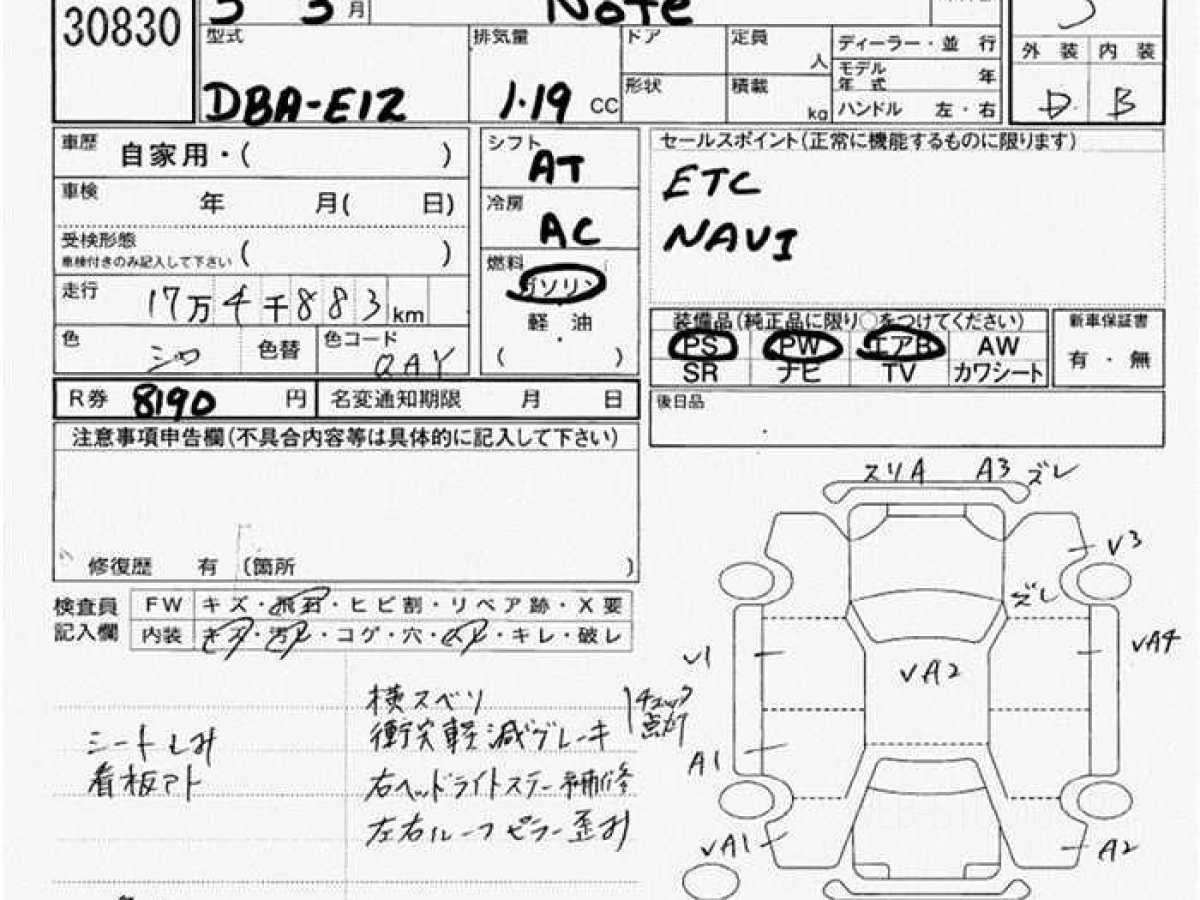 30830
3 月 Note
外装 内装
D B
型式 DBA-E12
排気量 1.19 CC
ドア
定員 人
形状
積載 kg
ディーラー・並行
モデル年式 年
ハンドル 左・右
車歴 自家用・( )
車検 年 月( 日)
受検形態 ( )
車検付きのみ記入して下さい
走行 17万4千883km
色 シロ 色替 色コード QAY
シフト AT
冷房 AC
燃料 ガソリン
軽油
( )
セールスポイント(正常に機能するものに限ります)
ETC
NAVI
装備品(純正品に限り○をつけてください)
PS PW エアB AW
SR ナビ TV カワシート
新車保証書
有・無
R券 8190 円 名変通知期限 月 日
後日品
注意事項申告欄(不具合内容等は具体的に記入して下さい)
修復歴 有 〔箇所 )
検査員記入欄
FW キズ・飛石・ヒビ割・リペア跡・X要
内装 キズ・汚レ・コゲ・穴・スレ・キレ・破レ
シートしみ
看板アト
横スベリ
衝突軽減ブレーキ
チェック点灯
右ヘッドライトステー補修
左右ルーフピラー歪み
スリA A3 ズレ
V3
ズレ
V1
VA4
VA2
A1
VA1
A2